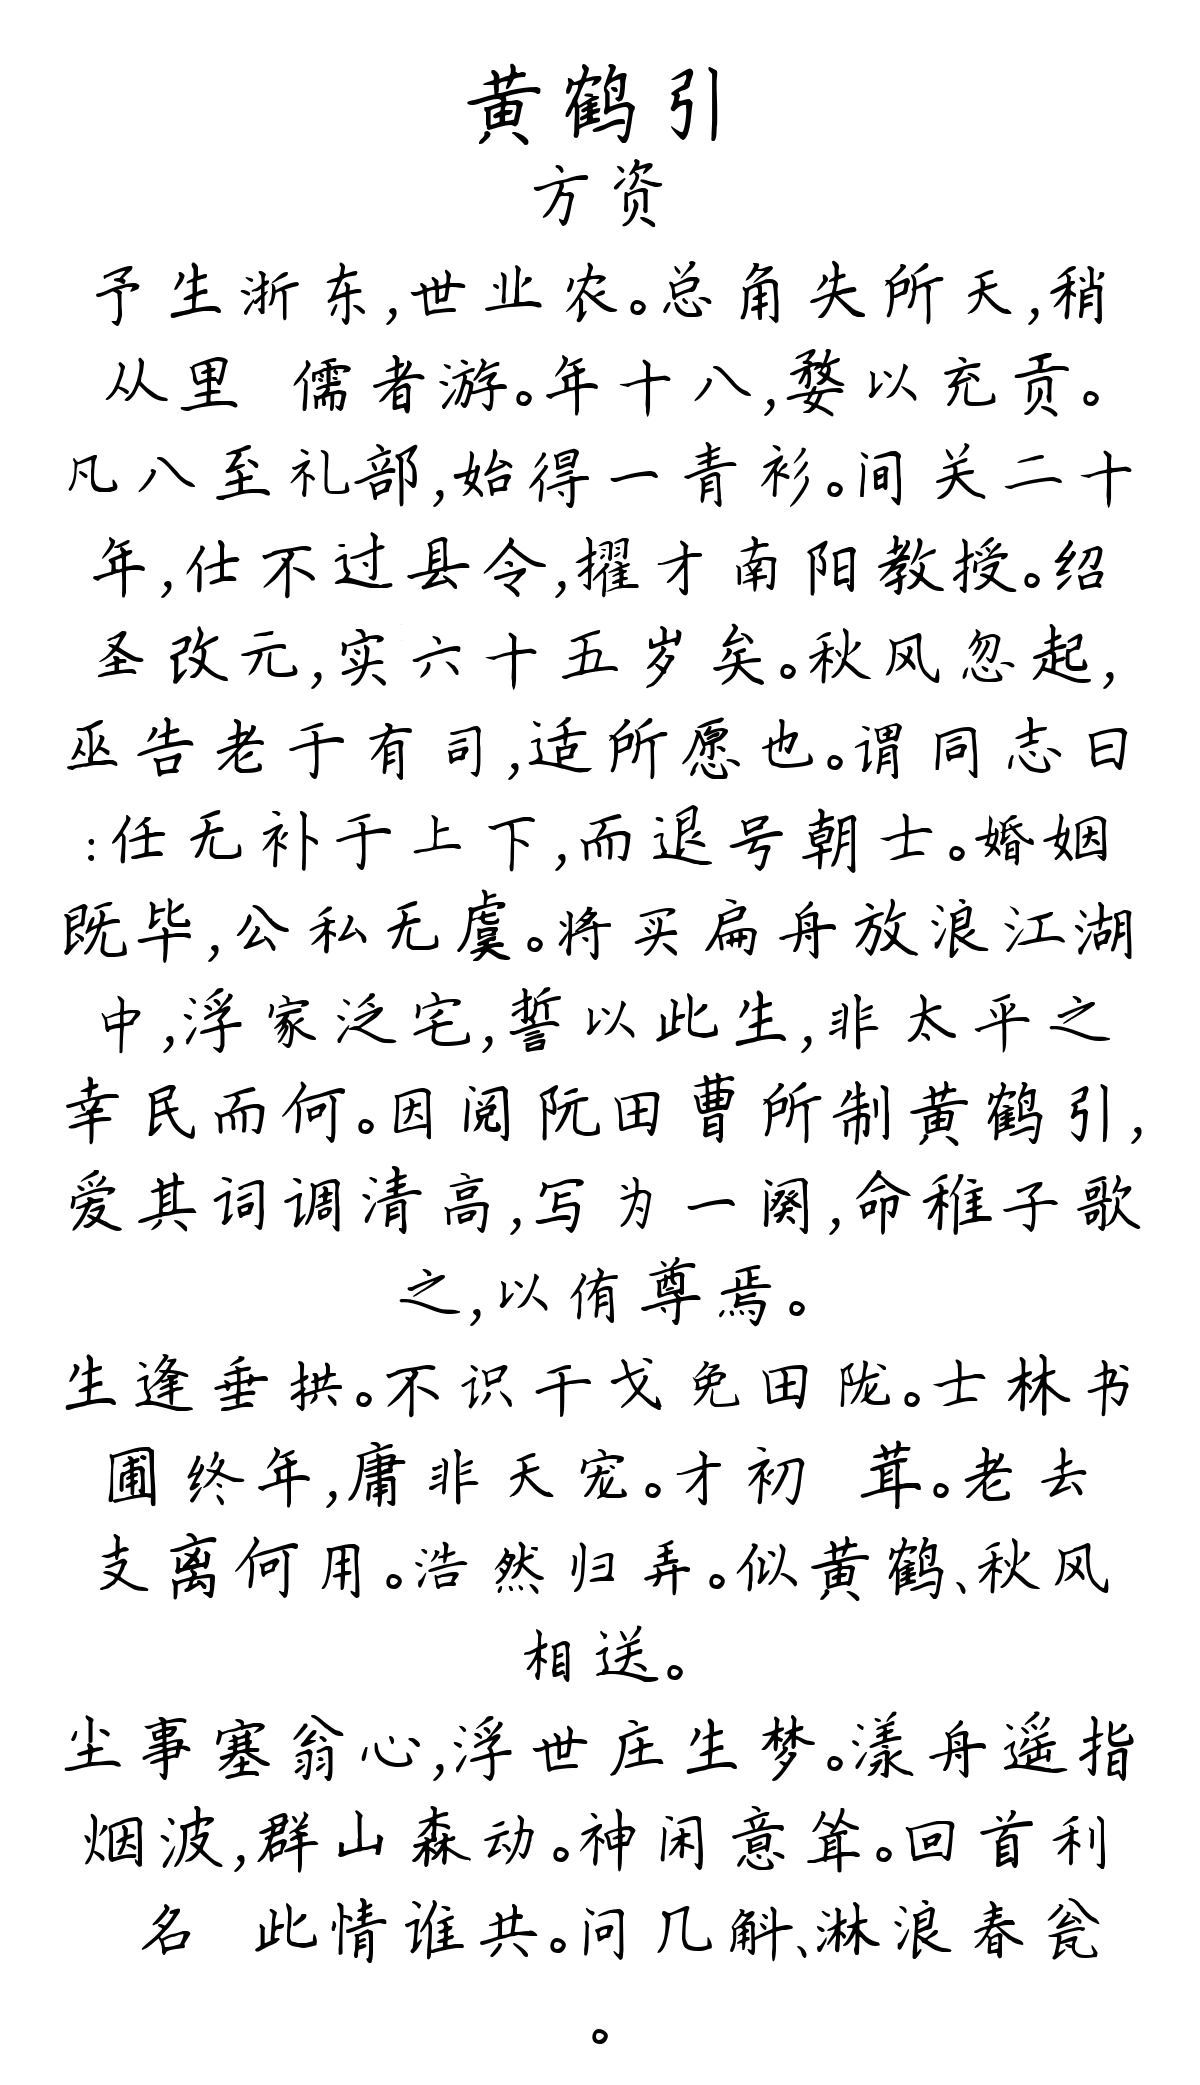 黄鹤引
方资
予生浙东,世业农。总角失所天,稍
从里 儒者游。年十八,婺以充贡。
凡八至礼部,始得一青衫。间关二十
年,仕不过县令,擢才南阳教授。绍
圣改元,实六十五岁矣。秋风忽起,
巫告老于有司,适所愿也。谓同志曰
:任无补于上下,而退号朝士。婚姻
既毕,公私无虞。将买扁舟放浪江湖
中,浮家泛宅,誓以此生,非太平之
幸民而何。因阅阮田曹所制黄鹤引,
爱其词调清高,写为一阕,命稚子歌
之,以侑尊焉。
生逢垂拱。不识干戈免田陇。士林书
圃终年,庸非天宠。才初 茸。老去
支离何用。浩然归弄。似黄鹤、秋风
相送。
尘事塞翁心,浮世庄生梦。漾舟遥指
烟波,群山森动。神闲意耸。回首利
名 此情谁共。问几斛、淋浪春瓮
。